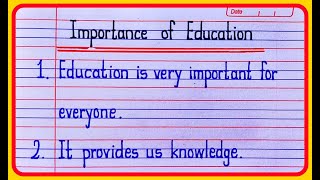 Date / /
Importance of Education
1. Education is very important for
everyone.
2. It provides us knowledge.